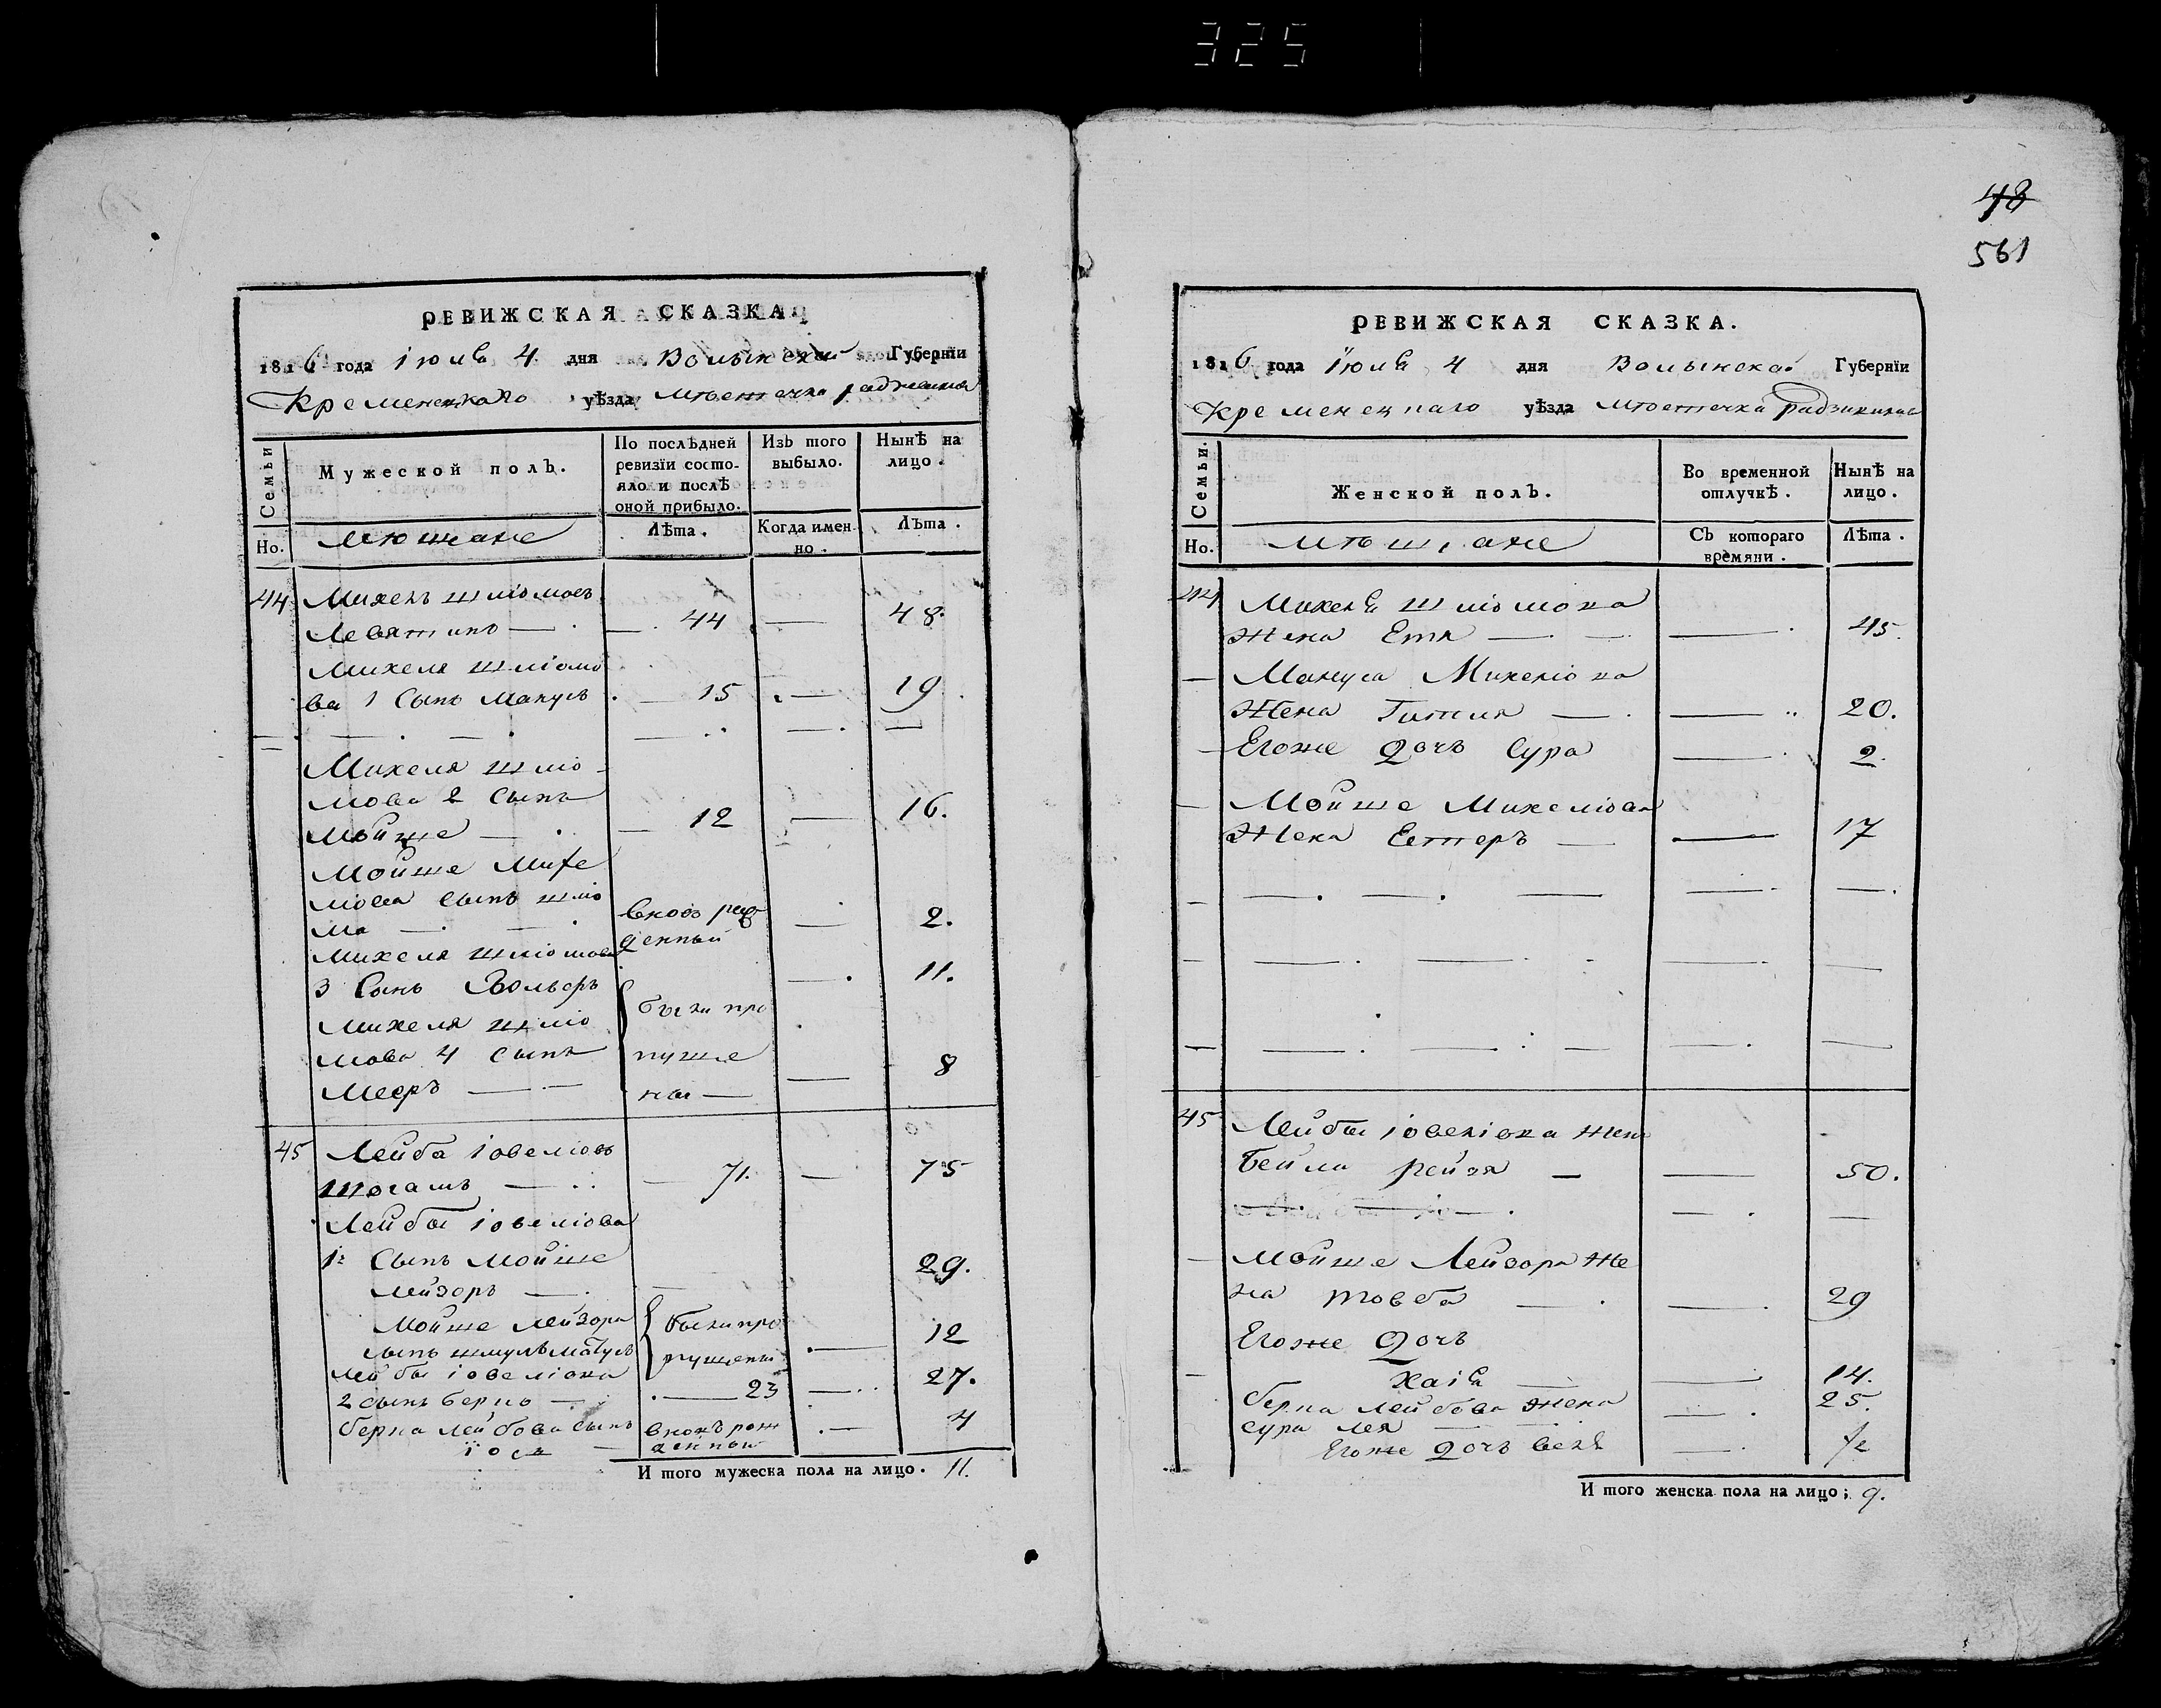 325
РЕВИЖСКАЯ СКАЗКА.
1816 года іюля 4 дня Волынской Губерніи
Кременецкаго уѣзда мѣстечка
Семьи
Мужеской полъ.
По послѣдней ревизіи состояло и послѣ оной прибыло.
Изъ того выбыло.
Нынѣ на лицо.
Но.
мѣщане
Лѣта.
Когда именно.
Лѣта.
44 Михель шліомовъ
— 44 — 48.
Михеля шліомо
ва 1 сынъ Манусъ — 15 — 19
Михеля шліо
мова 2 сынъ
Мойше — 12 — 16.
Мойше Михе
ліова сынъ шліо
ма — вновь рож
денный — 2.
Михеля шліомова
3 сынъ Вольфъ — 11.
Михеля шліо были про
мова 4 сынъ пуще
Мееръ — ны — 8
45 Лейба іовеліовъ
— 71. — 75
Лейбы іовеліова
1й сынъ Мойше 29.
лейзоръ —
Мойше лейзора были про
сынъ шмуль пущены — 12
лейбы іовеліова
2 сынъ берко — 23 — 27.
берка лейбова сынъ вновь рож — 4
іось — денный
И того мужеска пола на лицо. 11.
48
561
РЕВИЖСКАЯ СКАЗКА.
1816 года Іюля 4 дня Волынской Губерніи
Кременецкаго уѣзда мѣстечка
Семьи.
Женской полъ.
Во временной отлучкѣ.
Нынѣ на лицо.
Но.
мѣщане
Съ котораго времяни.
Лѣта.
44 Михеля шліомова
жена Етя — 45.
— Мануса Михеліова
жена Гитля — 20.
— Егоже дочь Сура — 2.
— Мойше Михеліова
Жена Естеръ — 17
45 Лейбы іовеліова жена
Бейла рейзя — 50.
— Мойше Лейзора же
на товба — 29
Егоже дочь
— хаія — 14.
берка лейбова жена 25.
сура лея —
Егоже дочь — 1/2
И того женска пола на лицо; 9.